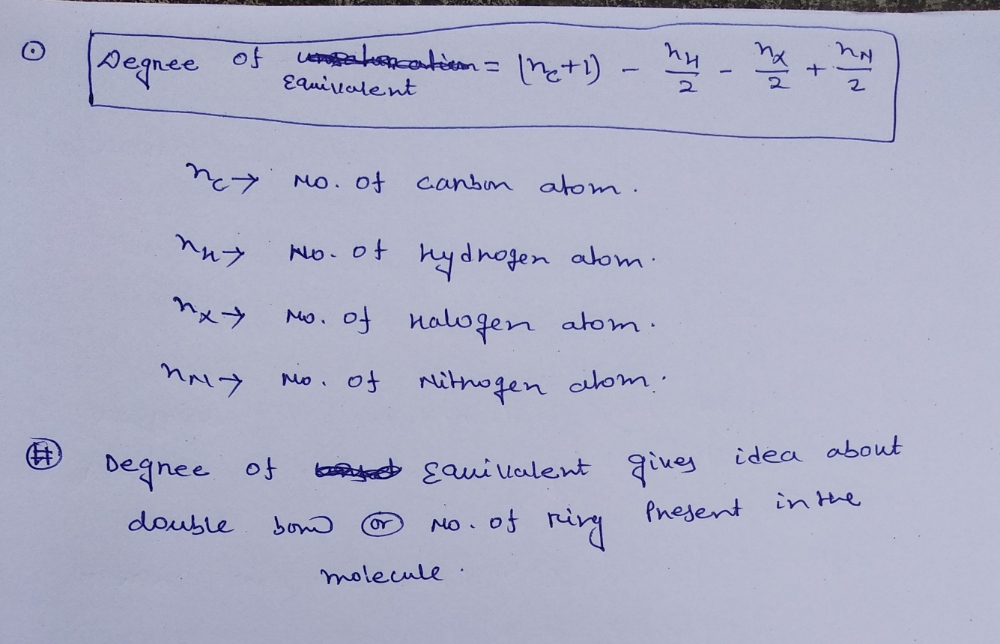 Degree of unsaturation = (nC+1) - nH/2 - nX/2 + nN/2
Equivalent
nC → No. of carbon atom.
nH → No. of Hydrogen atom.
nX → No. of Halogen atom.
nN → No. of Nitrogen atom.
# Degree of Equivalent gives idea about
double bond or No. of ring Present in the
molecule.